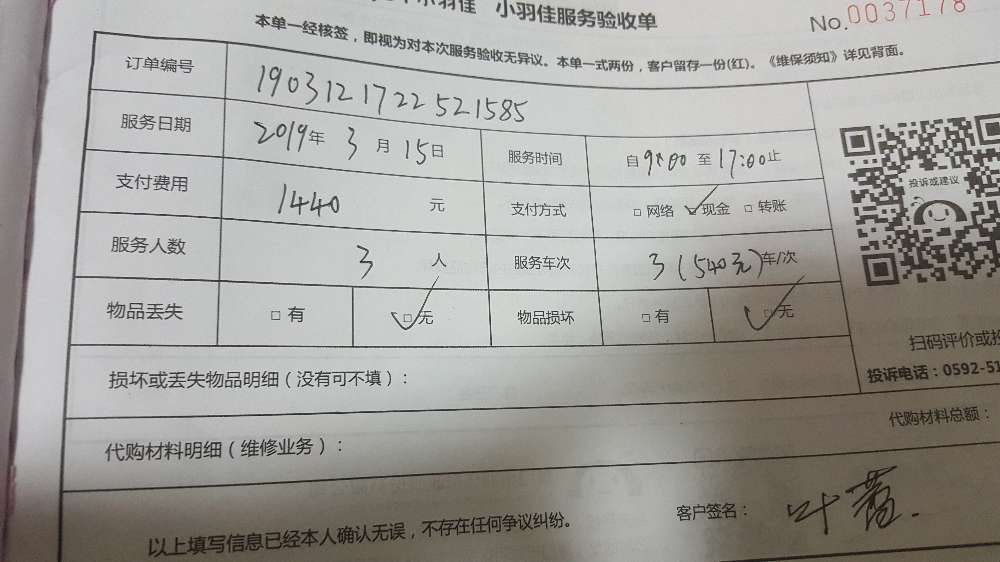 小羽佳 小羽佳服务验收单
No.0037178
本单一经核签，即视为对本次服务验收无异议。本单一式两份，客户留存一份(红)。《维保须知》详见背面。
订单编号 1903121722521585
服务日期 2019年 3 月 15日 服务时间 自 9:00 至 17:00止
支付费用 1440 元 支付方式 □ 网络 □ 现金 □ 转账
服务人数 3 人 服务车次 3 (540元) 车/次
物品丢失 □ 有 □ 无 物品损坏 □ 有 □ 无
投诉或建议
扫码评价或投
投诉电话：0592-51
损坏或丢失物品明细（没有可不填）：
代购材料明细（维修业务）：
代购材料总额：
以上填写信息已经本人确认无误，不存在任何争议纠纷。
客户签名： 叶